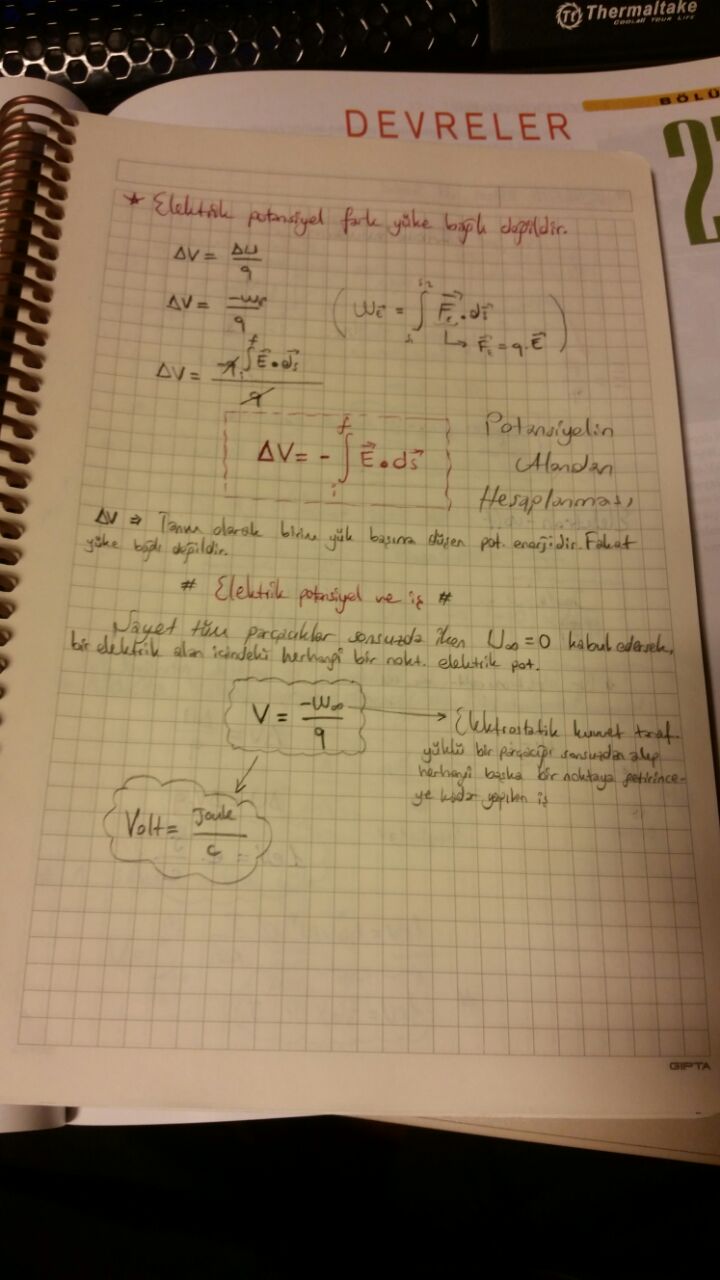 Thermaltake
COOL ALL YOUR LIFE
BÖLÜ
DEVRELER
2
★ Elektrik potansiyel fark yüke bağlı değildir.
ΔV = ΔU / q
ΔV = -W / q ( W = ∫ F . ds
↳ F = q . E )
ΔV = -q ∫ E . ds / q
ΔV = - ∫ E . ds Potansiyelin
Alandan
Hesaplanması
ΔV ⇒ Tanım olarak birim yük başına düşen pot. enerjidir. Fakat
yüke bağlı değildir.
# Elektrik potansiyel ve iş #
Şayet tüm parçacıklar sonsuzda iken U∞ = 0 kabul edersek,
bir elektrik alan içindeki herhangi bir nokt. elektrik pot.
V = -W∞ / q → Elektrostatik kuvvet taraf.
yüklü bir parçacığı sonsuzdan alıp
herhangi başka bir noktaya getirince-
ye kadar yapılan iş
Volt = Joule / C
GIPTA